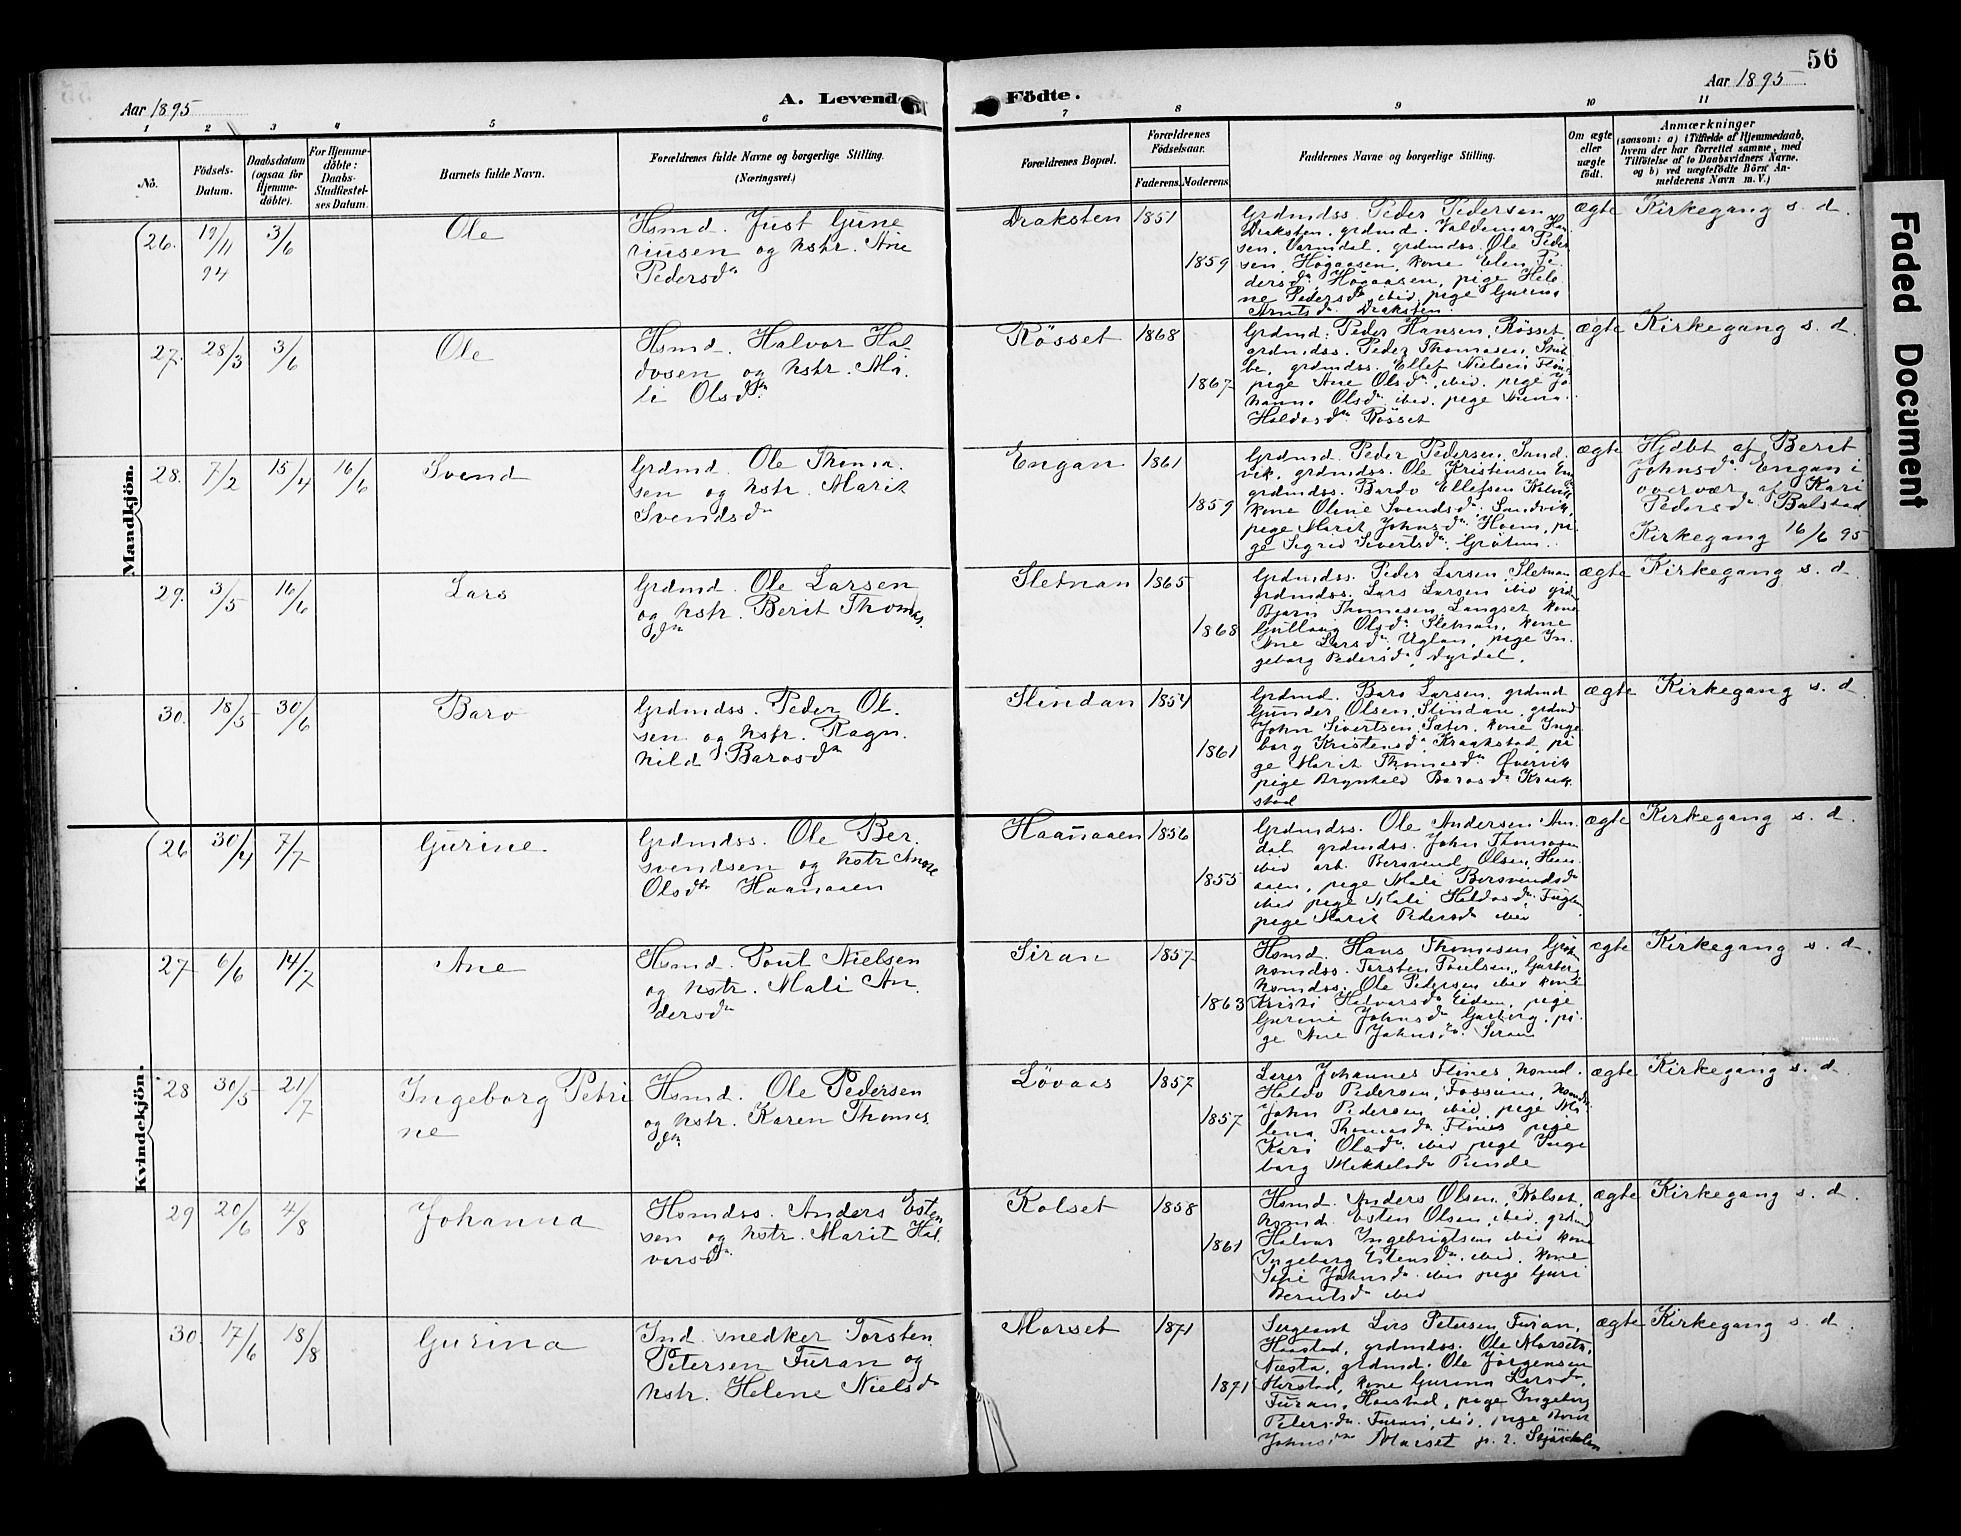 56
Aar 1895
A. Levende Födte.
Aar 1895
1 2 3 4 5 6 7 8 9 10 11
No.
Födsels-
Datum.
Daabsdatum
(ogsaa for
Hjemme-
döbte).
For Hjemme-
döbte:
Daabs-
Stadfæstel-
ses Datum.
Barnets fulde Navn.
Forældrenes fulde Navne og borgerlige Stilling.
(Næringsvei.)
Forældrenes Bopæl.
Forældrenes
Födselsaar.
Faderens. Moderens.
Faddernes Navne og borgerlige Stilling.
Om ægte
eller
uægte
født.
Anmærkninger
(saasom: a) i Tilfælde af Hjemmedaab,
hvem der har forrettet samme, med
Tilföielse af to Daabsvidners Navne.
og b) ved uægtefödte Börn An-
melderens Navn m. V.)
Mandkjön.
26. 19/11 94 3/6
Ole
Hsmd. Just Gune
riusen og hstr. Ane
Pedersdtr
Draksten 1851
1859
Grdmdss. Peder Pedersen
Draksten, grdmd. Valdemar Han
sen, Varmdal, grdmdss. Ole Peder
sen, Högaasen, kone Elen Pe-
dersdtr Högaasen, pige Hele
ne Pedersdtr ibid, pige Gurina
Arntsdtr Draksten.
ægte
Kirkegang s. d.
27. 28/3 3/6
Ole
Hsmd. Halvor Hal
dosen og hstr. Ma-
li Olsdtr
Rösset 1868
1867
Grdmd. Peder Hansen, Rösset,
grdmdss. Peder Thomasen, Stub
be, grdmdss. Ellef Nielsen
pige Ane Olsdtr, ibid. pige Jo
hanna Olsdtr ibid. pige
Haldosdtr Rösset
ægte
Kirkegang s. d.
28. 7/2 15/4 16/6
Svend
Grdmd. Ole Thoma-
sen og hstr. Marit
Svendsdtr
Engan 1861
1859
Grdmd. Peder Pedersen, Sand
vik, grdmdss. Ole Kristensen
grdmdss. Bardo Ellefsen
kone Oline Svendsdtr Sandvik,
pige Marit Johnsdtr Hoem, pi-
ge Sigrid Sivertsdtr, Gröten.
ægte
Hjdbt af Berit
Johnsdtr Engan i
overvær af Kari
Pedersdtr Balstad
Kirkegang 16/6 95
29. 3/5 16/6
Lars
Grdmd. Ole Larsen
og hstr. Berit Thomas-
dtr
Sletnan 1865
1868
Grdmdss. Peder Larsen, Sletnan
grdmdss. Lars Larsen ibid grd
Bjarn Thomasen, Langset, kone
Gullaug Olsdtr Sletnan, kone
Ane Larsdtr, Uglan, pige In-
geborg Pedersdtr, Dyrdal.
ægte
Kirkegang s. d.
30. 18/5 30/6
Baro
Grdmdss. Peder Ol-
sen og hstr. Ragn-
hild Barosdtr
Slindan 1854
1861
Grdmd. Baro Larsen, grdmd
Gunder Olsen, Slindan, grdmd
John Sivertsen, Sæter, kone Inge
borg Kristensdtr Kraakstad, pi
ge Marit Thomasdtr Övervik
pige Brynhild Barosdtr Kraak
stad
ægte
Kirkegang s. d.
Kvindekjön.
26 30/4 7/7
Gurine
Grdmdss. Ole Ber-
svendsen og hstr Anne
Olsdtr Haanaaen
Haanaaen 1856
1855
Grdmdss. Ole Andersen Aun-
dal grdmdss. John Thomasen
ibid arb. Bersvend Olsen, Haan-
aaen, pige Mali Bersvendsdtr
ibid pige Mali Haldosdtr
pige Marit Pedersdtr ibid
ægte
Kirkegang s. d.
27 6/6 14/7
Ane
Hsmd. Poul Nielsen
og hstr. Mali An-
dersdtr
Siran 1857
1863
Hsmd. Hans Thomasen
hsmdss. Torsten Poulsen, Garberg
hsmdss. Ole Pedersen ibid kone
Kristi Halvorsdtr Eidem, pige
Gurine Johnsdtr Garberg, pi-
ge Ane Johnsdtr Siran
ægte
Kirkegang s. d.
28 30/5 21/7
Ingeborg Petri
ne
Hsmd. Ole Pedersen
og hstr. Karen Thomas
dtr
Lövaas 1857
1857
Lærer Johannes Flønes, hsmd.
Haldo Pedersen, Fossum, hsmds
John Pedersen ibid, pige Ma
lena Thomasdtr Flønes pige
Kari Olsdtr ibid pige Inge
borg Mikkelsdtr Punde
ægte
Kirkegang s. d.
29 20/6 4/8
Johanna
Hsmdss. Anders Esten
sen og hstr. Marit Hal-
vorsdtr
Kolset 1858
1861
Hsmd. Anders Olsen, Kolset,
hsmd. Esten Olsen, ibid. grdmd
Halvor Ingebrigtsen ibid kone
Ingeborg Estensdtr. ibid. kone
Sofie Johnsdtr. ibid pige Guri
Berntsdtr ibid
ægte
Kirkegang s. d.
30. 17/6 18/8
Gurina
Ind. snedker Torsten
Petersen Furan og
hstr. Helene Nielsdtr
Morset 1871
1871
Sergeant Lars Petersen Furan,
Haastad, grdmdss. Ole Morset,
Næsta, grdmd. Ole Jörgensen
kone Gurina Larsdtr,
Furan, Haastad, pige Ingeborg
Petersdtr Furan, ibid, pige
Johnsdtr Morset p. t. Stjørdalen
ægte
Kirkegang s. d.
Faded Document